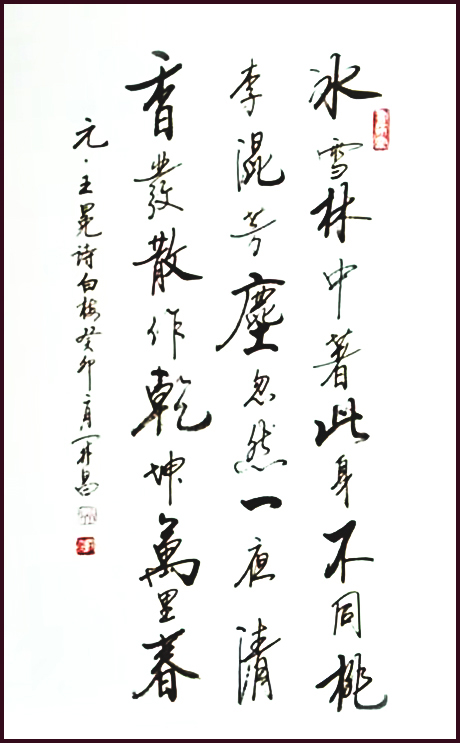 冰雪林中著此身不同桃
李混芳塵忽然一夜清
香發散作乾坤萬里春
元·王冕詩白梅癸卯井昌